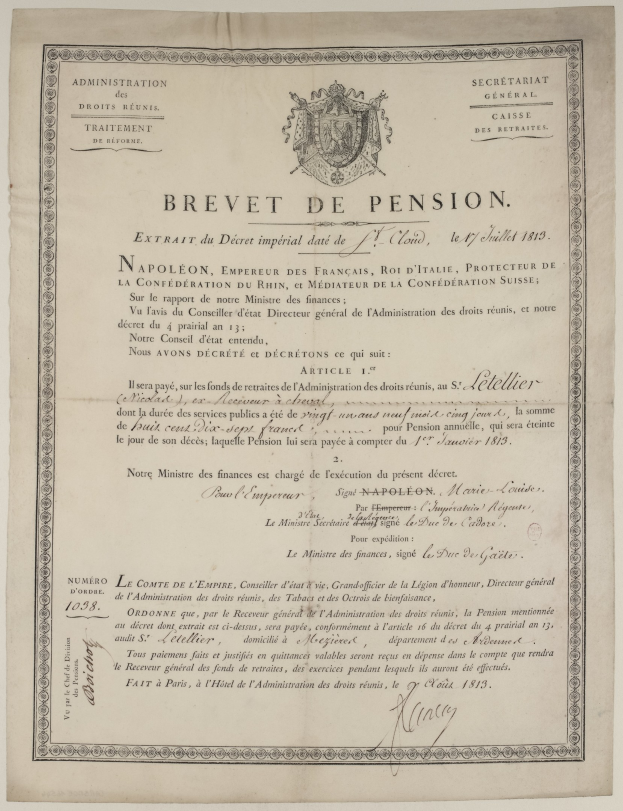 ADMINISTRATION
des
DROITS RÉUNIS.
TRAITEMENT
DE RÉFORME.
SECRÉTARIAT
GÉNÉRAL.
CAISSE
DES RETRAITES.
BREVET DE PENSION.
EXTRAIT du Décret impérial daté de St. Cloud, le 17 Juillet 1813.
NAPOLÉON, EMPEREUR DES FRANÇAIS, ROI D'ITALIE, PROTECTEUR DE
LA CONFÉDÉRATION DU RHIN, et MÉDIATEUR DE LA CONFÉDÉRATION SUISSE;
Sur le rapport de notre Ministre des finances;
Vu l'avis du Conseiller d'état Directeur général de l'Administration des droits réunis, et notre
décret du 4 prairial an 13;
Notre Conseil d'état entendu,
NOUS AVONS DÉCRÉTÉ et DÉCRÉTONS ce qui suit:
ARTICLE 1.er
Il sera payé, sur les fonds de retraites de l'Administration des droits réunis, au S.r Letellier
(Nicolas), ex Receveur à cheval,
dont la durée des services publics a été de vingt un ans neuf mois cinq jours, la somme
de huit cent dix-sept francs, pour Pension annuelle, qui sera éteinte
le jour de son décès; laquelle Pension lui sera payée à compter du 1er Janvier 1813.
2.
Notre Ministre des finances est chargé de l'exécution du présent décret.
Pour l'Empereur, Signé NAPOLÉON. Marie Louise.
Par l'Empereur: l'Impératrice Régente,
Le Ministre Secrétaire d'état de la Régence d'état signé le Duc de Cadore.
Pour expédition:
Le Ministre des finances, signé le Duc de Gaëte.
NUMÉRO
D'ORDRE.
1038.
Vu par le Chef de Division
des Pensions.
LE COMTE DE L'EMPIRE, Conseiller d'état à vie, Grand-officier de la Légion d'honneur, Directeur général
de l'Administration des droits réunis, des Tabacs et des Octrois de bienfaisance,
ORDONNE que, par le Receveur général de l'Administration des droits réunis, la Pension mentionnée
au décret dont extrait est ci-dessus, sera payée, conformément à l'article 16 du décret du 4 prairial an 13,
audit S.r Letellier, domicilié à Mezières, département des Ardennes.
Tous paiemens faits et justifiés en quittances valables seront reçus en dépense dans le compte que rendra
le Receveur général des fonds de retraites, des exercices pendant lesquels ils auront été effectués.
FAIT à Paris, à l'Hôtel de l'Administration des droits réunis, le 9 Août 1813.